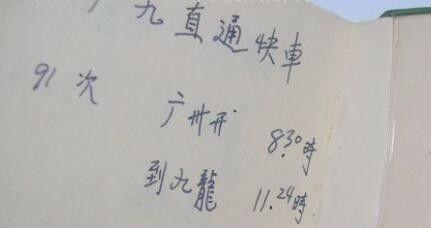 九直通快車
91次
广州开 8.30時
到九龍 11.24時